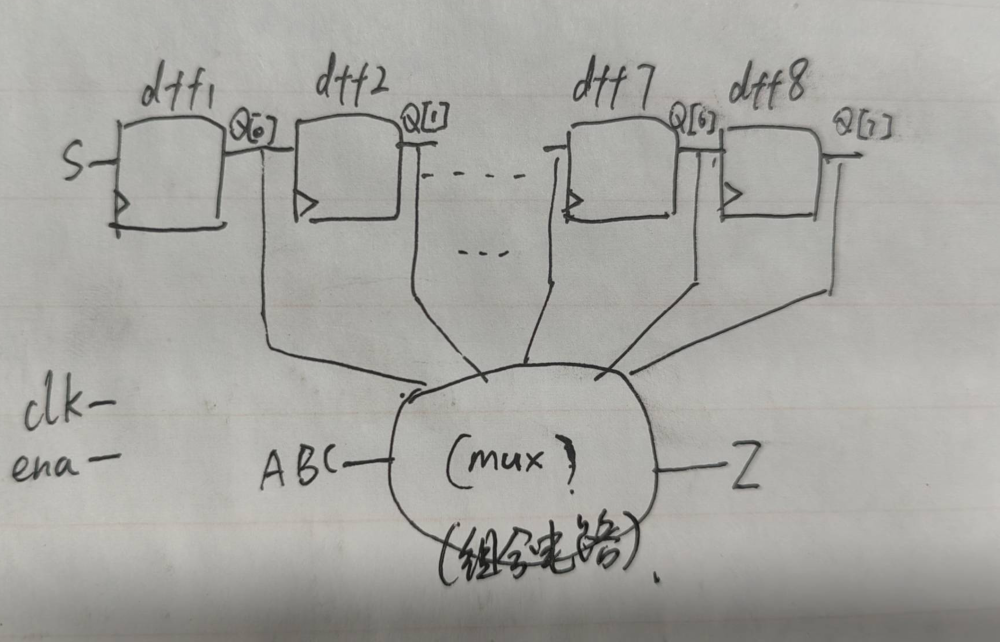 dff1 dff2 dff7 dff8
S Q[0] Q[1] Q[6] Q[7]
clk
ena ABC (mux) Z
(组合电路)